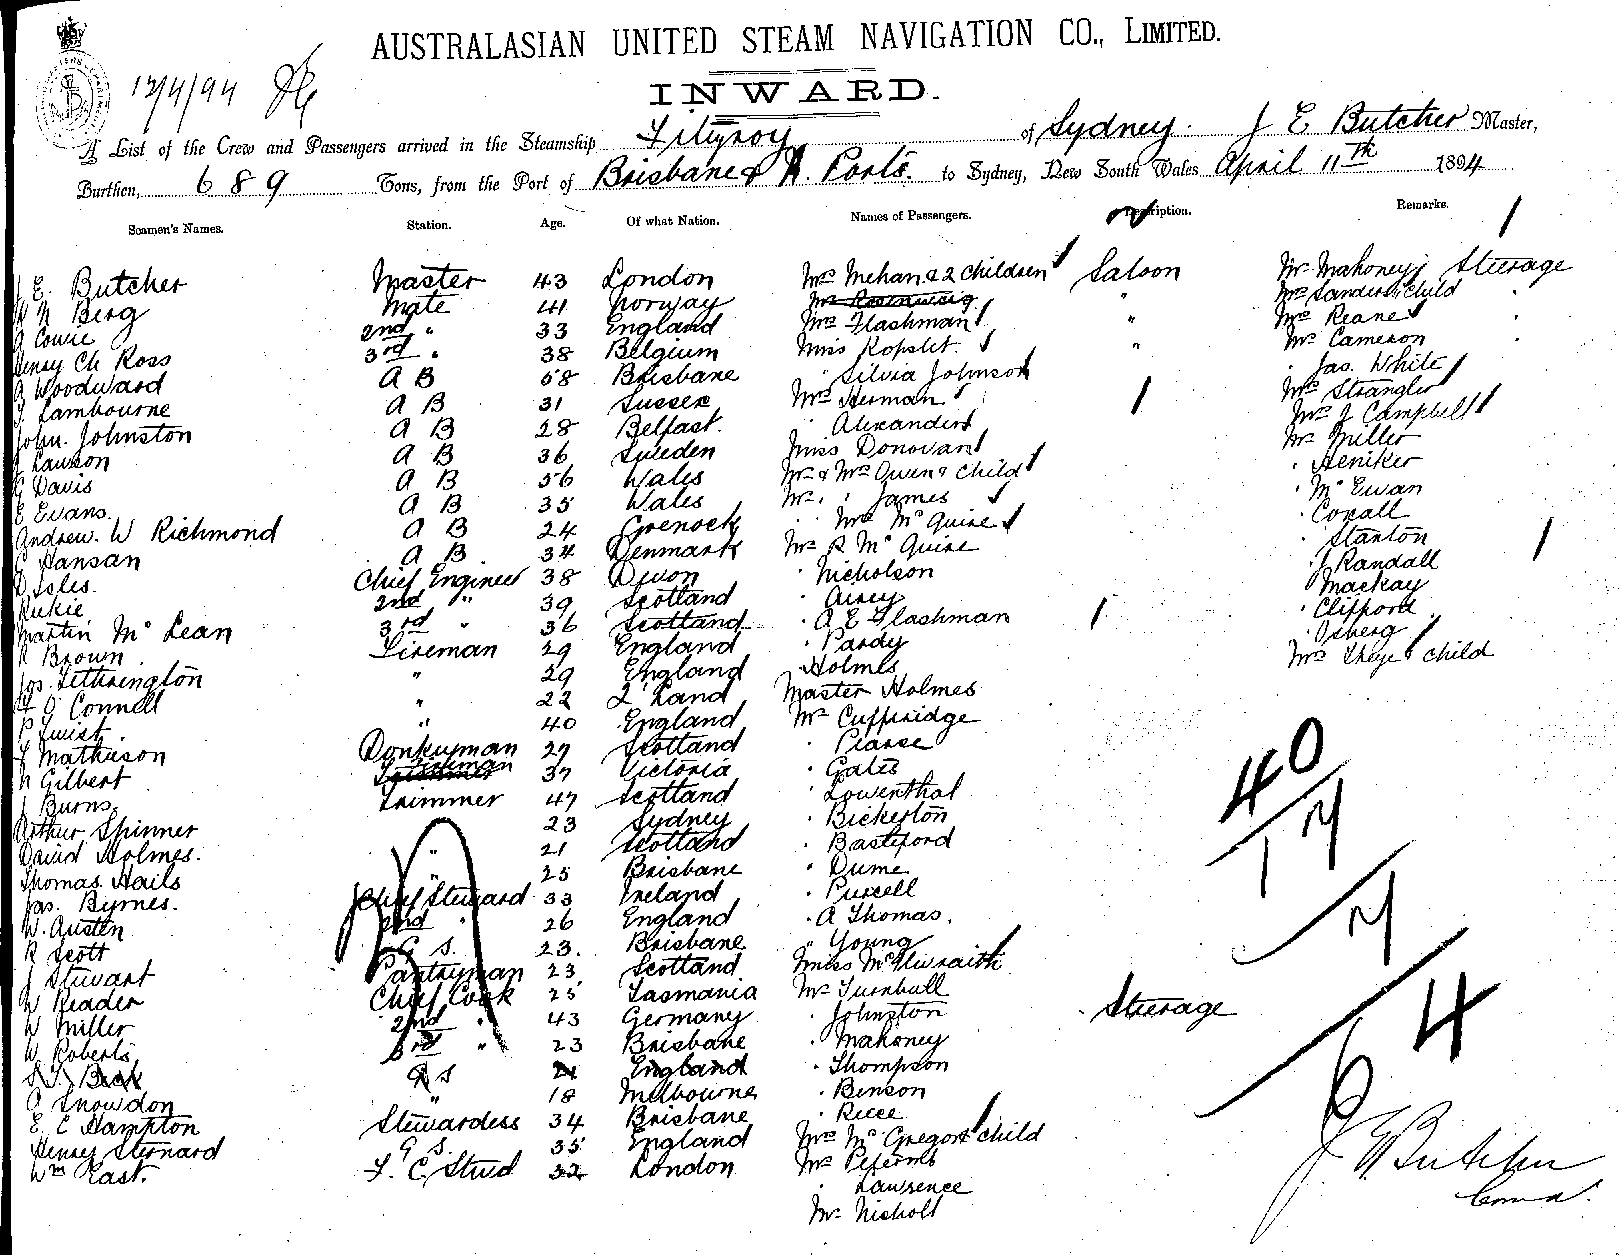 AUSTRALASIAN UNITED STEAM NAVIGATION CO., LIMITED.
INWARD.
12/4/94
A List of the Crew and Passengers arrived in the Steamship Fitzroy of Sydney. J E Butcher Master,
Burthen, 689 Tons, from the Port of Brisbane & N. Ports. to Sydney, New South Wales April 11th 1894
Seamen's Names. Station. Age. Of what Nation. Names of Passengers. Description. Remarks.
J E. Butcher Master 43 London Mrs Mehan & 2 Children Saloon Mr Mahoney Steerage
N Berg Mate 41 Norway Mr Rosenweig " Mrs Sanders & Child
A Cowie 2nd " 33 England Mrs Flashman " Mrs Keane
Henry Ch Ross 3rd " 38 Belgium Miss Kopslet. " Mr Cameron
A Woodward A B 58 Brisbane " Silvia Johnson " Jas. White
F Lambourne A B 31 Sussex Mrs Herman Mrs Strangler
John. Johnston A B 28 Belfast. " Alexander Mrs J Campbell
Lawson A B 36 Sweden Miss Donovan Mr Miller
E Davis A B 56 Wales Mr & Mrs Owen & Child " Heniker
E Evans. A B 35 Wales Mr " " James " Mc Ewan
Andrew. W Richmond A B 24 Grenock " " Mrs Mc Guire " Coxall
C Hansan A B 34 Denmark Mr R Mc Guire " Stanton
D Isles. Chief Engineer 38 Devon " Nicholson " J Randall
Rukie 2nd " 39 Scotland " Airey " Mackay
Martin Mc Lean 3rd " 36 Scotland " A E Flashman " Clifford
R Brown. Fireman 29 England " Pardy " Osberg
Jos. Tetherington " 29 England " Holmes Mrs Thrye & child
O'Connell " 22 Z'Land Master Holmes
P Twist. " 40 England Mr Cuffridge
F Mathieson Donkeyman 29 Scotland " Pearse
N Gilbert Fireman 37 Victoria " Gates
J Burns. Trimmer 47 Scotland " Lowenthal
Arthur Spinner 23 Sydney " Bickerton
David Holmes. " 21 Scotland " Basteford
Thomas Hails " 25 Brisbane " Dume
Jas. Byrnes. Chief Steward 33 Ireland " Purcell
W. Austen 2nd " 26 England " A Thomas.
R Scott G S. 23. Brisbane " Young
J Stewart Pantryman 23 Scotland Miss McIlwraith
W Reader Chief Cook 25 Tasmania Mr Turnbull
W Miller 2nd " 43 Germany " Johnston Steerage
W Roberts 3rd " 23 Brisbane " Mahoney
Beck G S 21 England " Thompson
A Snowdon " 18 Melbourne " Benson
E. E Hampton Stewardess 34 Brisbane " Reece
Henry Sternard G S. 35 England Mrs Mc Gregor & child
Wm East. F. C. Stud 32 London Mr Peterms
" Lawrence
Mr Nicholl
40
17
4
6
J E Butcher